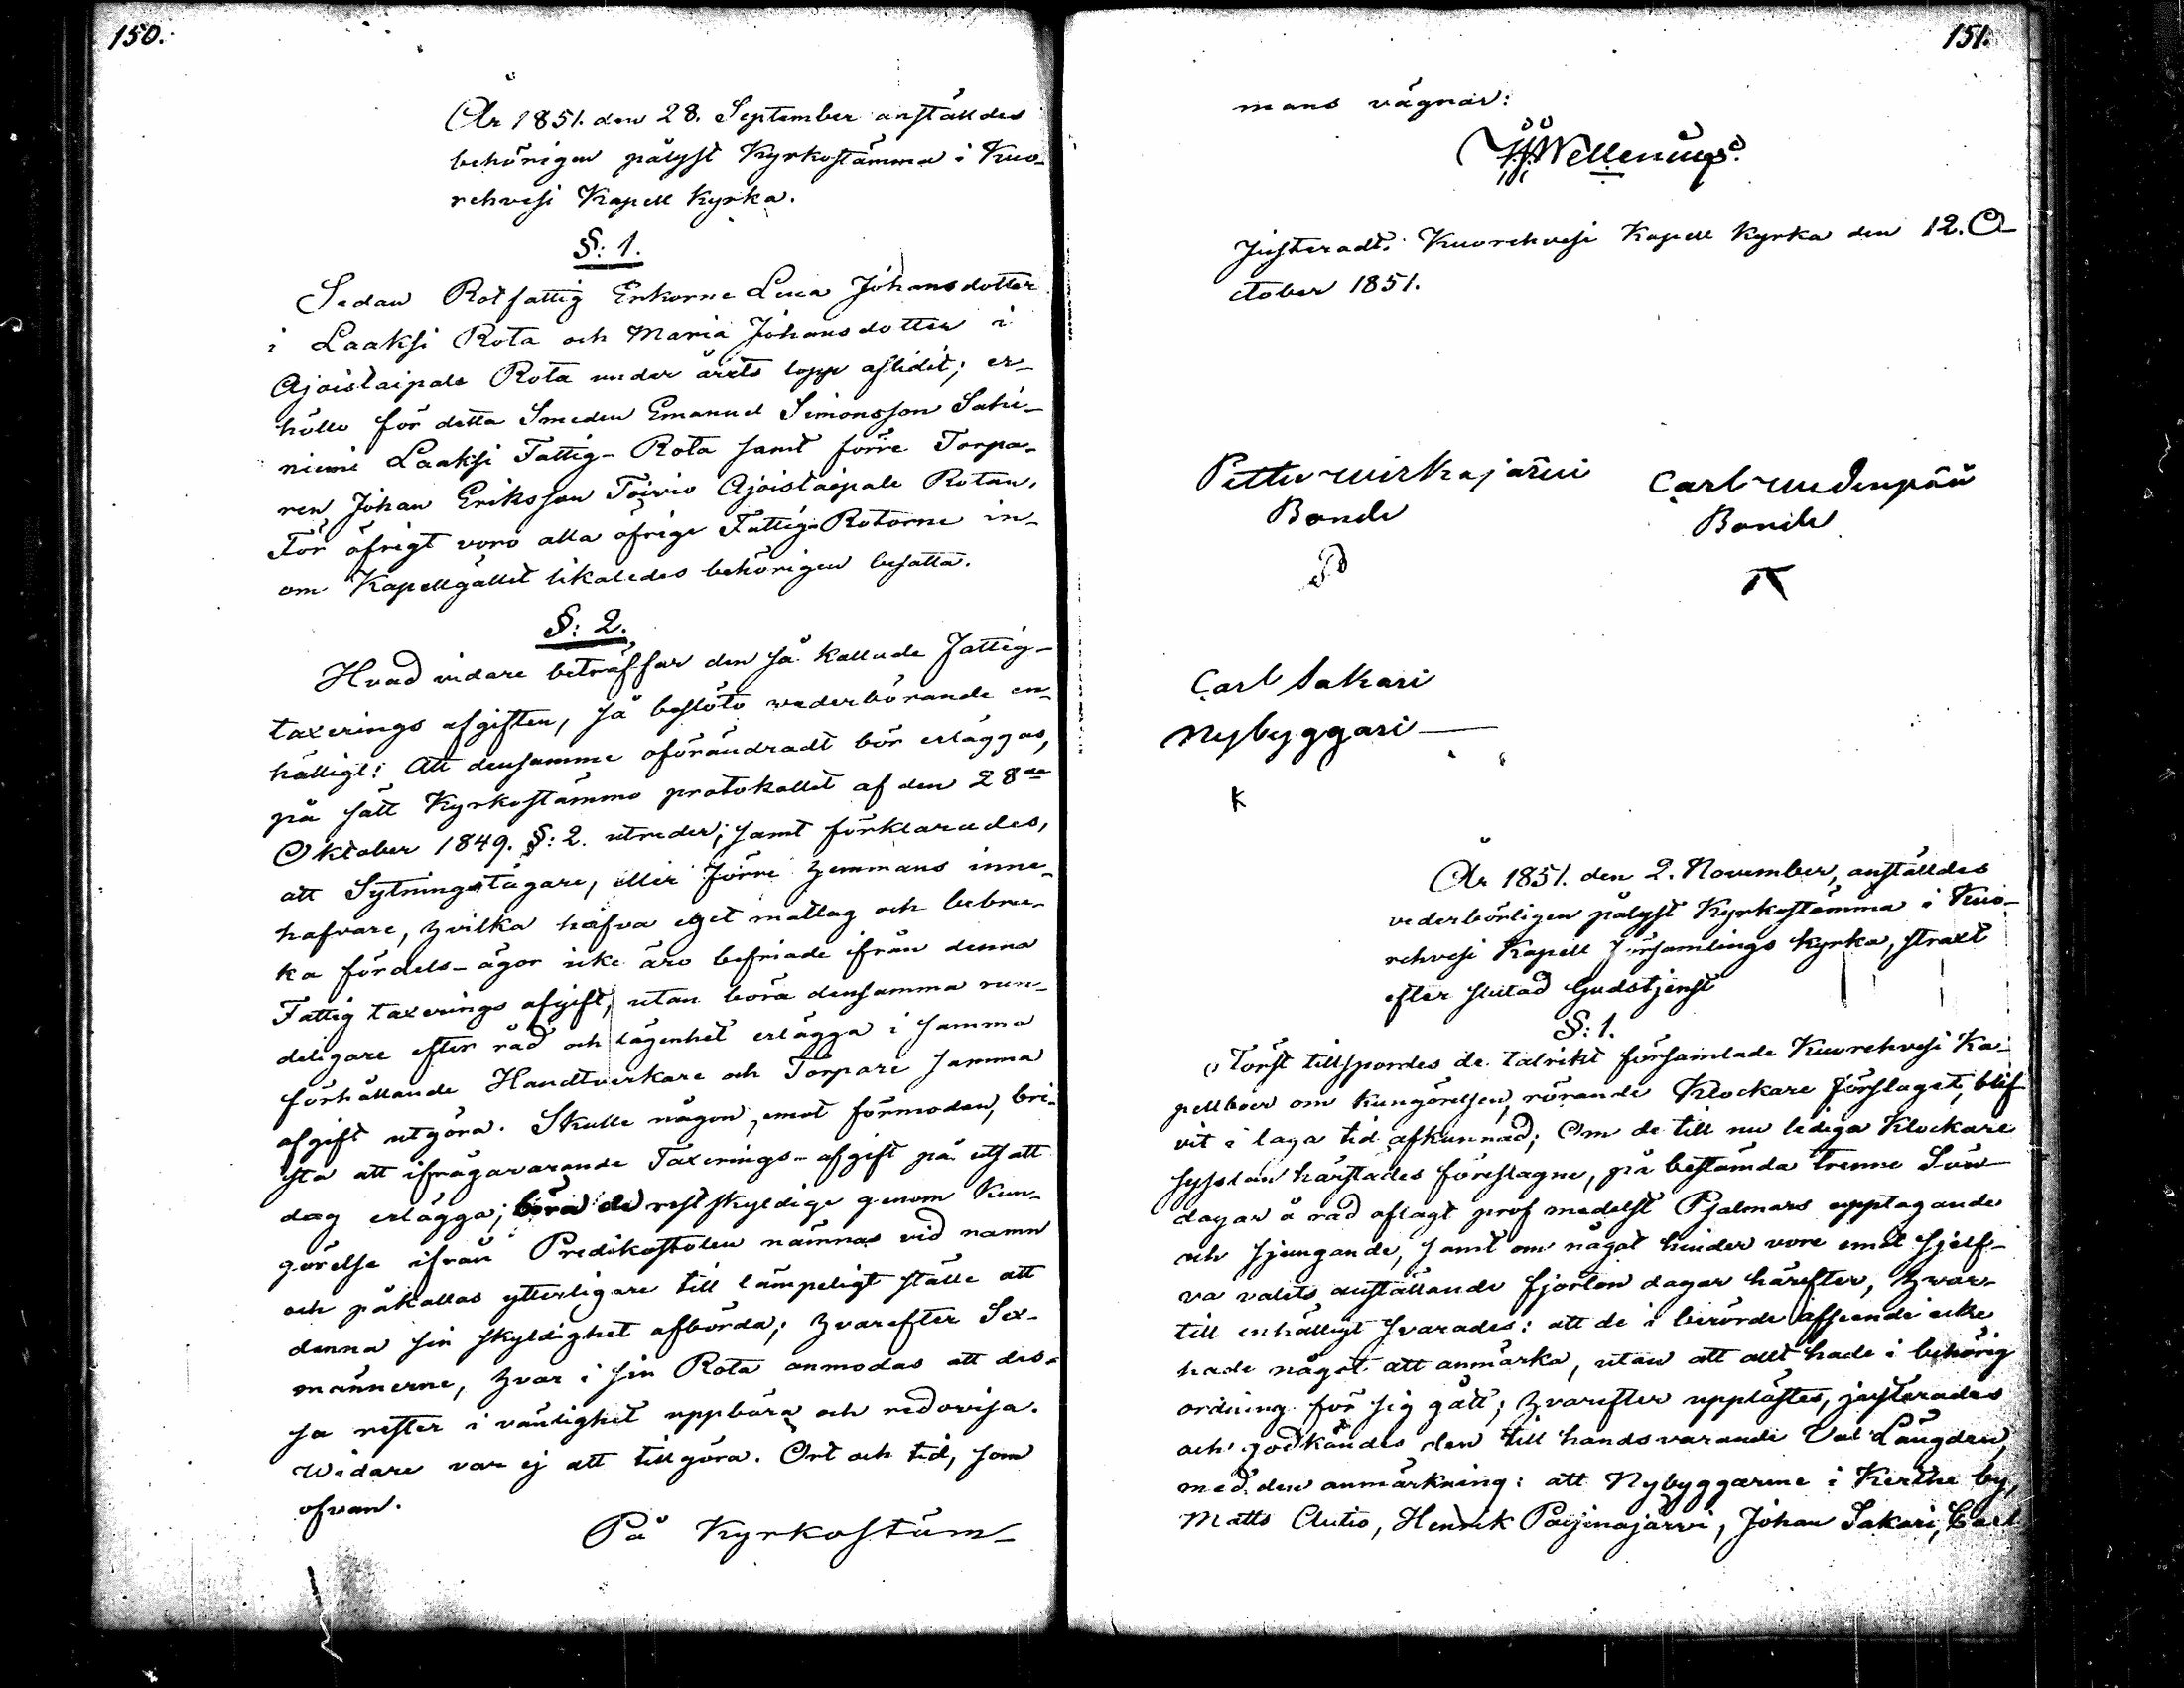 150.
År 1851. den 28. September anställdes
behörigen pålyst Kyrkostämma i Kuo-
rehvesi Kapell Kyrka.
§: 1.
Sedan Rotfattig Enkorne Lena Johansdotter
i Laaksi Rota och Maria Johansdotter i
Ajoistaipale Rota under årets lopp aflidit; er-
höllo för detta Smeden Emanuel Simonsson Sahi-
niemi Laaksi Fattig-Rota samt förre Torpa-
ren Johan Eriksson Toivio Ajoistaipale Rotan.
För öfrigt voro alla öfrige Fattig-Rotorne in-
om Kapellgället likaledes behörigen besatta.
§: 2.
Hvad vidare beträffar den så kallade Fattig-
taxerings afgiften, så beslöto vederbörande en-
hälligt: Att densamme oförändradt bör erläggas,
på sätt Kyrkostämmo protokollet af den 28de
Oktober 1849. §: 2. utreder; samt förklarades,
att Sytningstagare, eller förre hemmans inne-
hafvare, hvilka hafva eget matlag och bebru-
ka fördels-ägor icke äro befriade ifrån denna
Fattig taxerings afgift, utan böra densamma run-
deligare efter råd och lägenhet erlägga i samma
förhållande Handtverkare och Torpare samma
afgift utgöra. Skulle någon, emot förmodan, bri-
sta att ifrågavarande Taxerings-afgift på utsatt
dag erlägga; böra de restskyldige genom Kun-
görelse ifrån Predikostolen nämnas vid namn
och påkallas ytterligare till lämpeligt ställe att
denna sin skyldighet afbörda; hvarefter Sex-
männerne, hvar i sin Rota anmodas att des-
sa rester i vänlighet uppbära och redovisa.
Widare var ej att tillgöra. Ort och tid, som
ofvan.
På Kyrkostäm-
151.
mans vägnar:
Wellenius.
Justeradt, Kuorehvesi Kapell Kyrka den 12. O-
ctober 1851.
Petter wirkajärvi
Bonde
Carl uudenpää
Bonde
Carl Sakari
Nybyggari
K
År 1851. den 2. November, anställdes
vederbörligen pålyst Kyrkostämma i Kuo-
rehvesi Kapell Församlings Kyrka, straxt
efter slutad Gudstjenst
§: 1.
Först tillspordes de talrikt församlade Kuorehvesi Ka-
pellboer om kungörelsen, rörande Klockare förslaget, blif-
vit i laga tid afkunnad; Om de till nu lediga Klockare
sysslan härstädes föreslagne, på bestämda trenne Sön-
dagar å rad aflagt prof medelst Psalmars upptagande
och sjungande, samt om något hinder vore emot sjelf-
va valets anställande fjorton dagar härefter, hvar-
till enhälligt svarades: att de i berörde afseende icke
hade något att anmärka, utan att allt hade i behörig
ordning för sig gått; hvarefter upplästes, justerades
och godkändes den till hands varande Val Längden,
med den anmärkning: att Nybyggarne i Kerthe by,
Matts Autio, Henrik Paijinajärvi, Johan Sakari, Carl